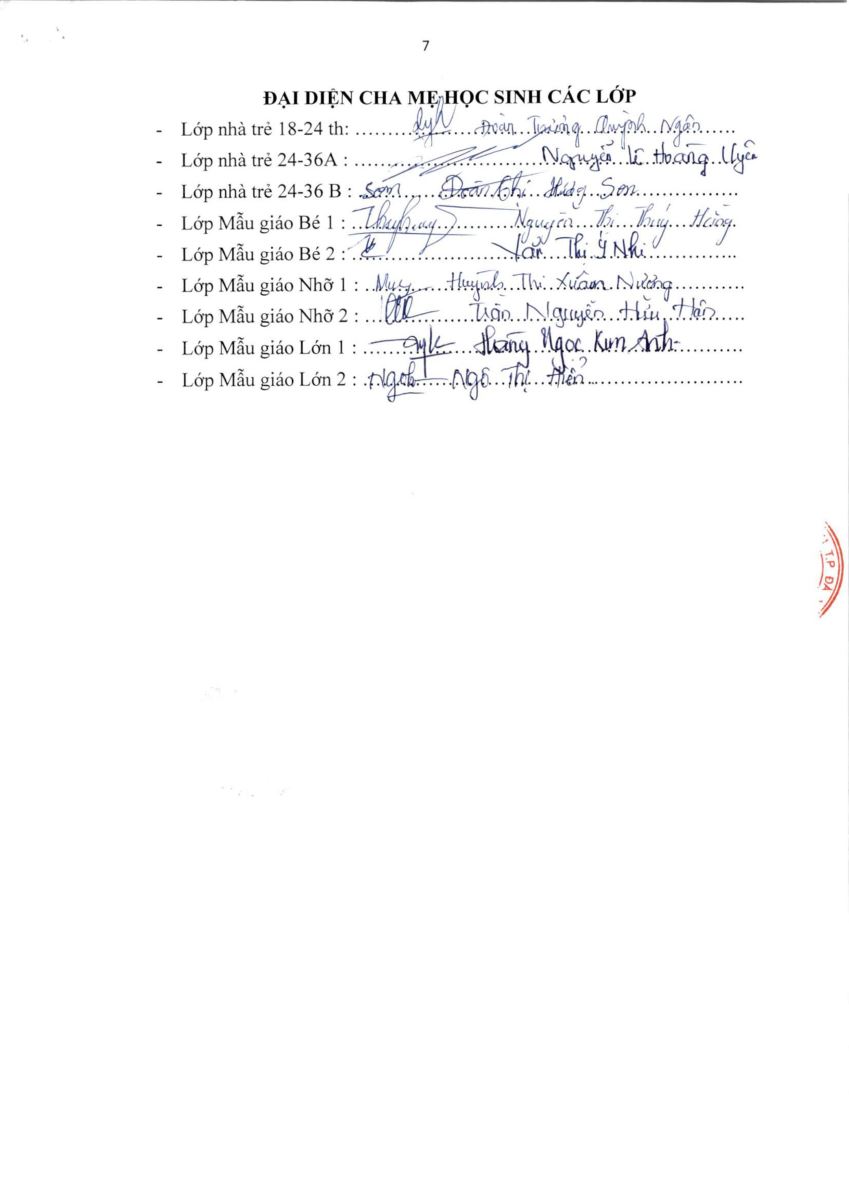 7
ĐẠI DIỆN CHA MẸ HỌC SINH CÁC LỚP
- Lớp nhà trẻ 18-24 th: Đoàn Trương Quỳnh Ngân
- Lớp nhà trẻ 24-36A : Nguyễn Lê Hoàng Uyên
- Lớp nhà trẻ 24-36 B : Sơn Đoàn Thị Sơn
- Lớp Mẫu giáo Bé 1 : Nguyễn Thị Thuý Hằng
- Lớp Mẫu giáo Bé 2 : Văn Thị Ý Nhi
- Lớp Mẫu giáo Nhỡ 1 : Huỳnh Thị Xuân Nương
- Lớp Mẫu giáo Nhỡ 2 : Trần Nguyễn Hữu Hân
- Lớp Mẫu giáo Lớn 1 : Hoàng Ngọc Kim Anh
- Lớp Mẫu giáo Lớn 2 : Ngô Thị
T.P ĐÀ